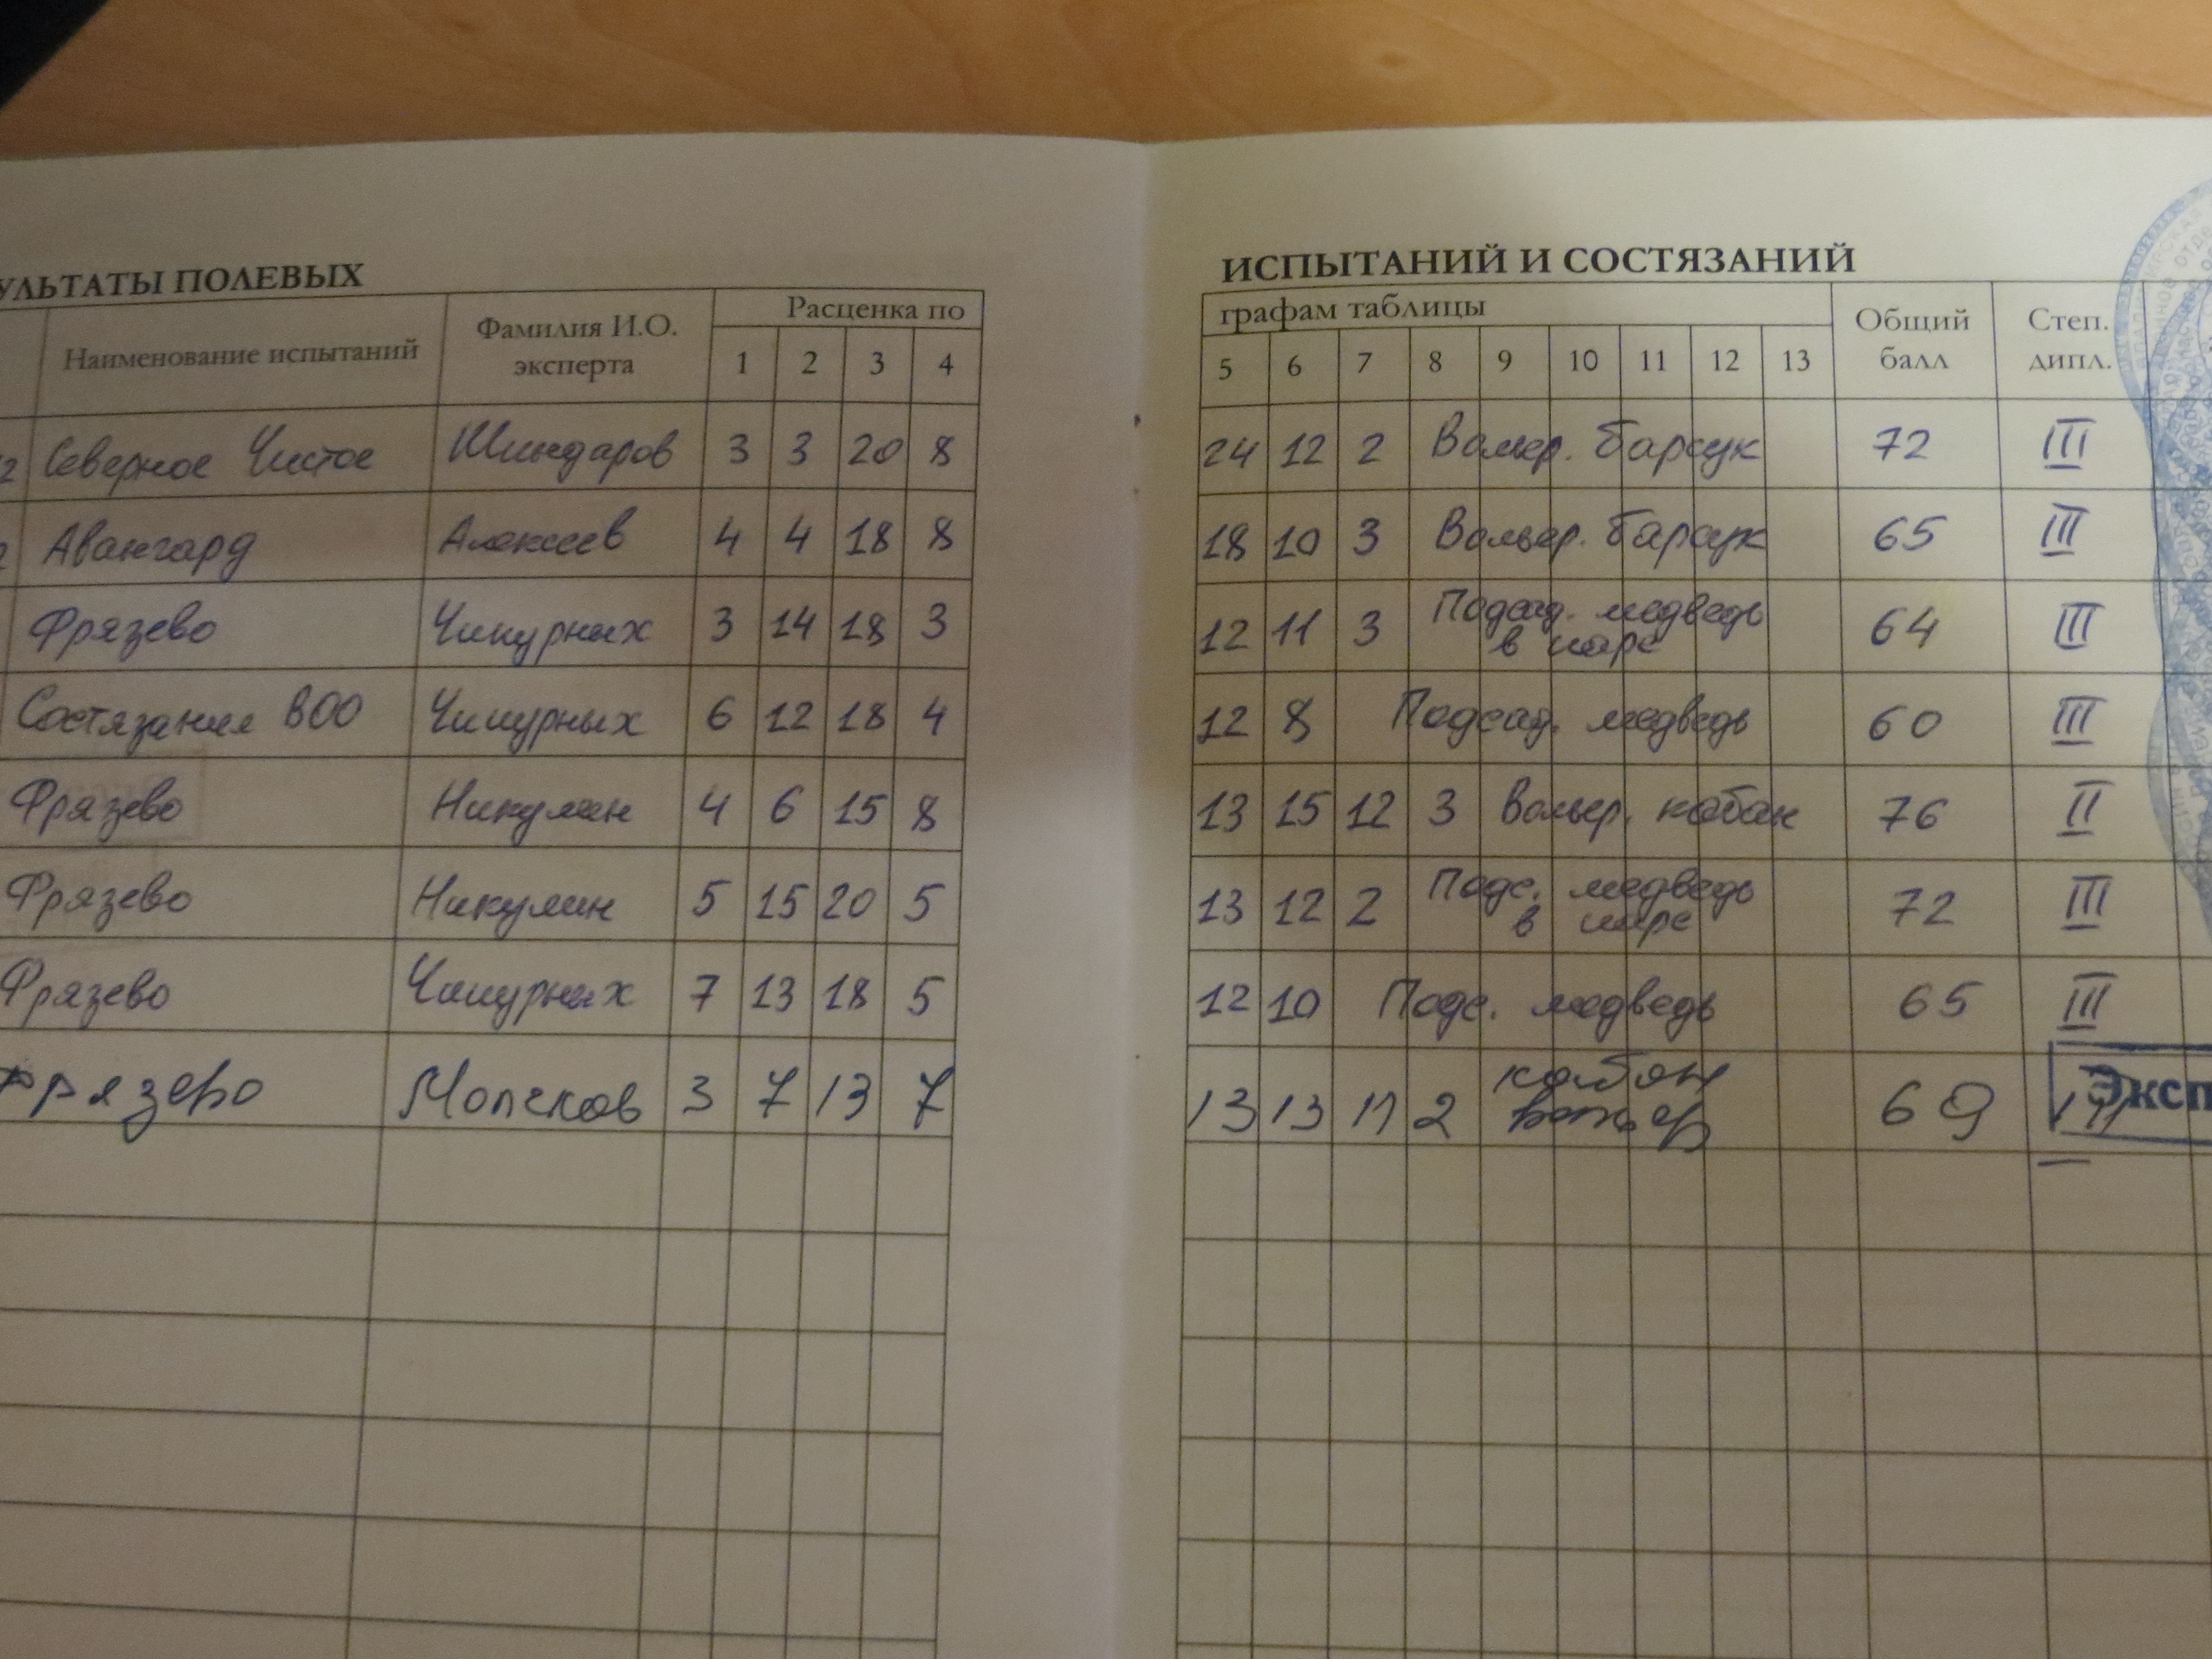 УЛЬТАТЫ ПОЛЕВЫХ
Наименование испытаний Фамилия И.О. эксперта Расценка по
1 2 3 4
Северное Чистое Шиндаров 3 3 20 8
Авангард Алексеев 4 4 18 8
Фрязево Чикурных 3 14 18 3
Состязания ВОО Чикурных 6 12 18 4
Фрязево Никулин 4 6 15 8
Фрязево Никулин 5 15 20 5
Фрязево Чикурных 7 13 18 5
Фрязево 3 7 13 7
ИСПЫТАНИЙ И СОСТЯЗАНИЙ
графам таблицы Общий балл Степ. дипл.
5 6 7 8 9 10 11 12 13
24 12 2 Вольер. барсук 72 III
18 10 3 Вольер. барсук 65 III
12 11 3 Подсад. медведь 64 III
в паре
12 8 Подсад. медведь 60 III
13 15 12 3 Вольер. кабан 76 II
13 12 2 Подс. медведь 72 III
в паре
12 10 Подс. медведь 65 III
кабан
13 13 11 2 вольер 69 III
Эксп